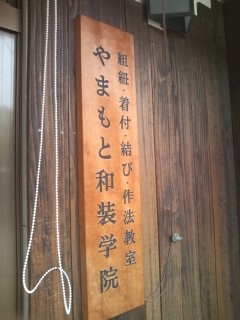 組紐・着付・結び・作法教室
やまもと和装学院